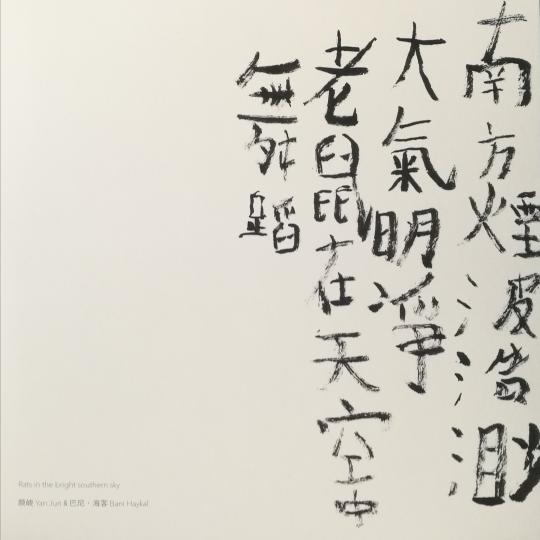 南方煙波浩渺
大氣明淨
老鼠在天空中
舞蹈
Rats in the bright southern sky
顏峻 Yan Jun & 巴尼·海客 Bani Haykal